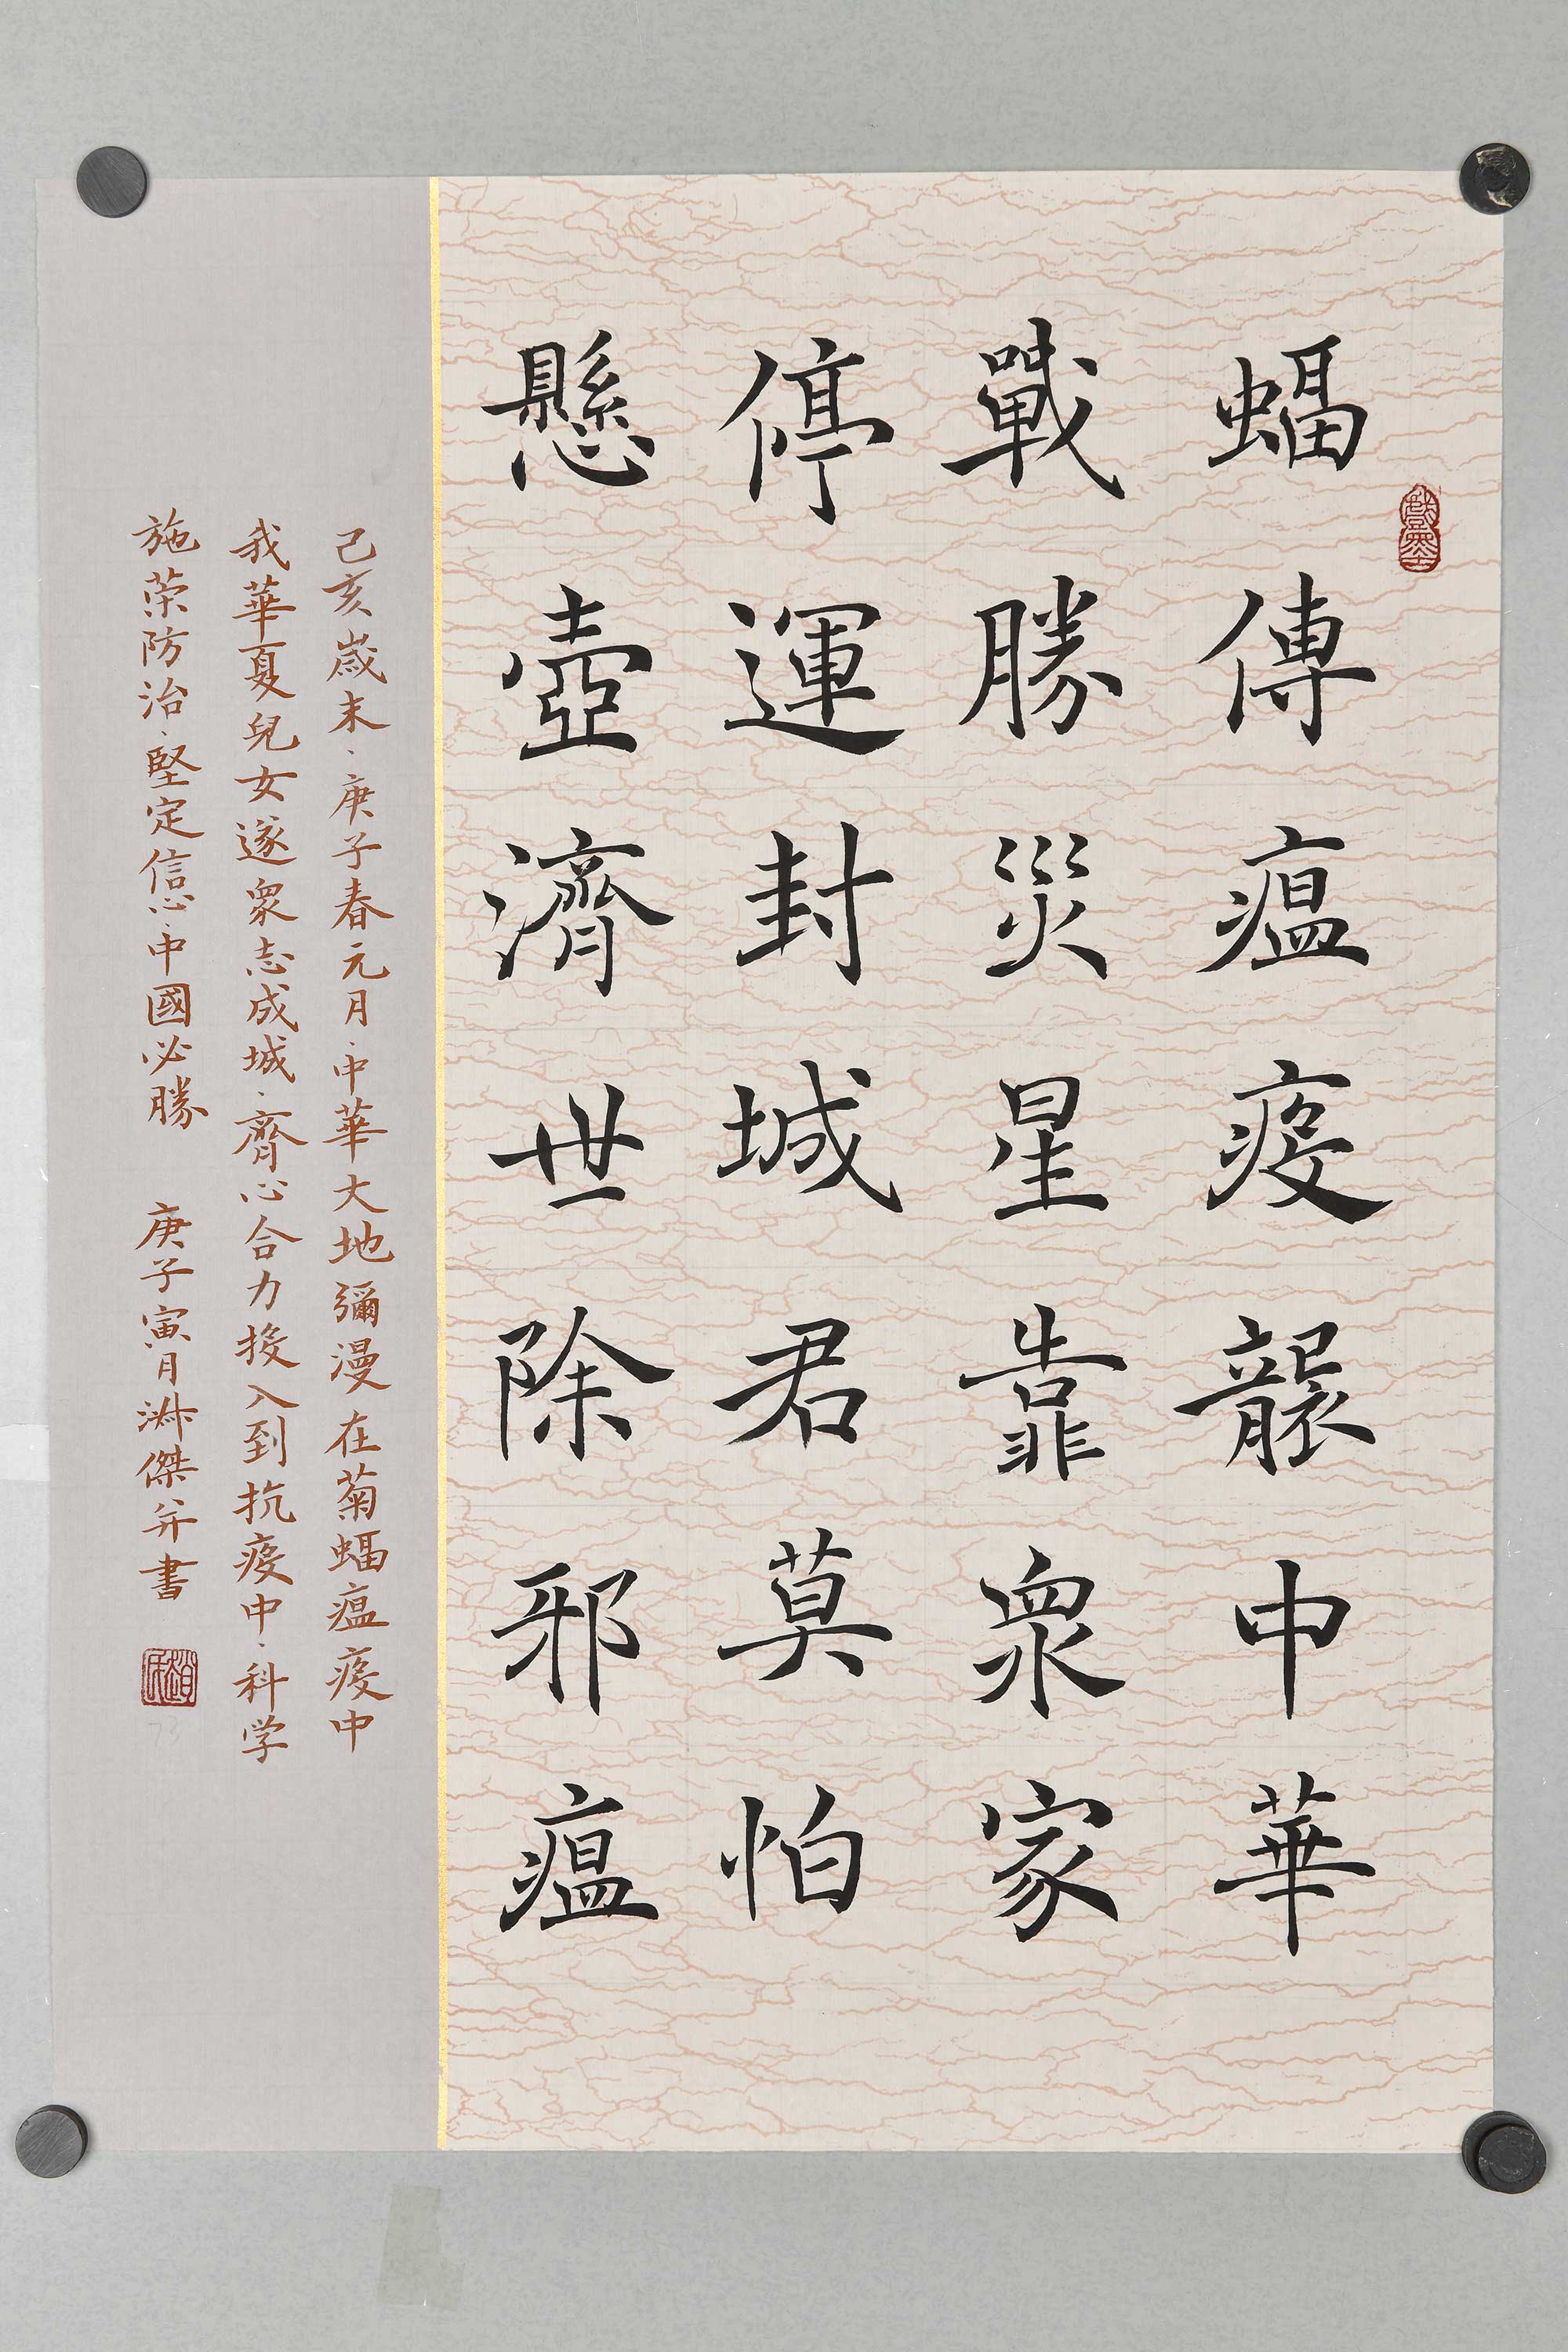 蝠傳瘟疫襲中華
戰勝災星靠衆家
停運封城君莫怕
懸壺濟世除邪瘟
戲墨
己亥歲末·庚子春元月·中華大地彌漫在菊蝠瘟疫中
我華夏兒女遂衆志成城·齊心合力投入到抗疫中·科学
施荣防治·堅定信心·中國必勝
庚子寅月淋傑并書
趙氏
73